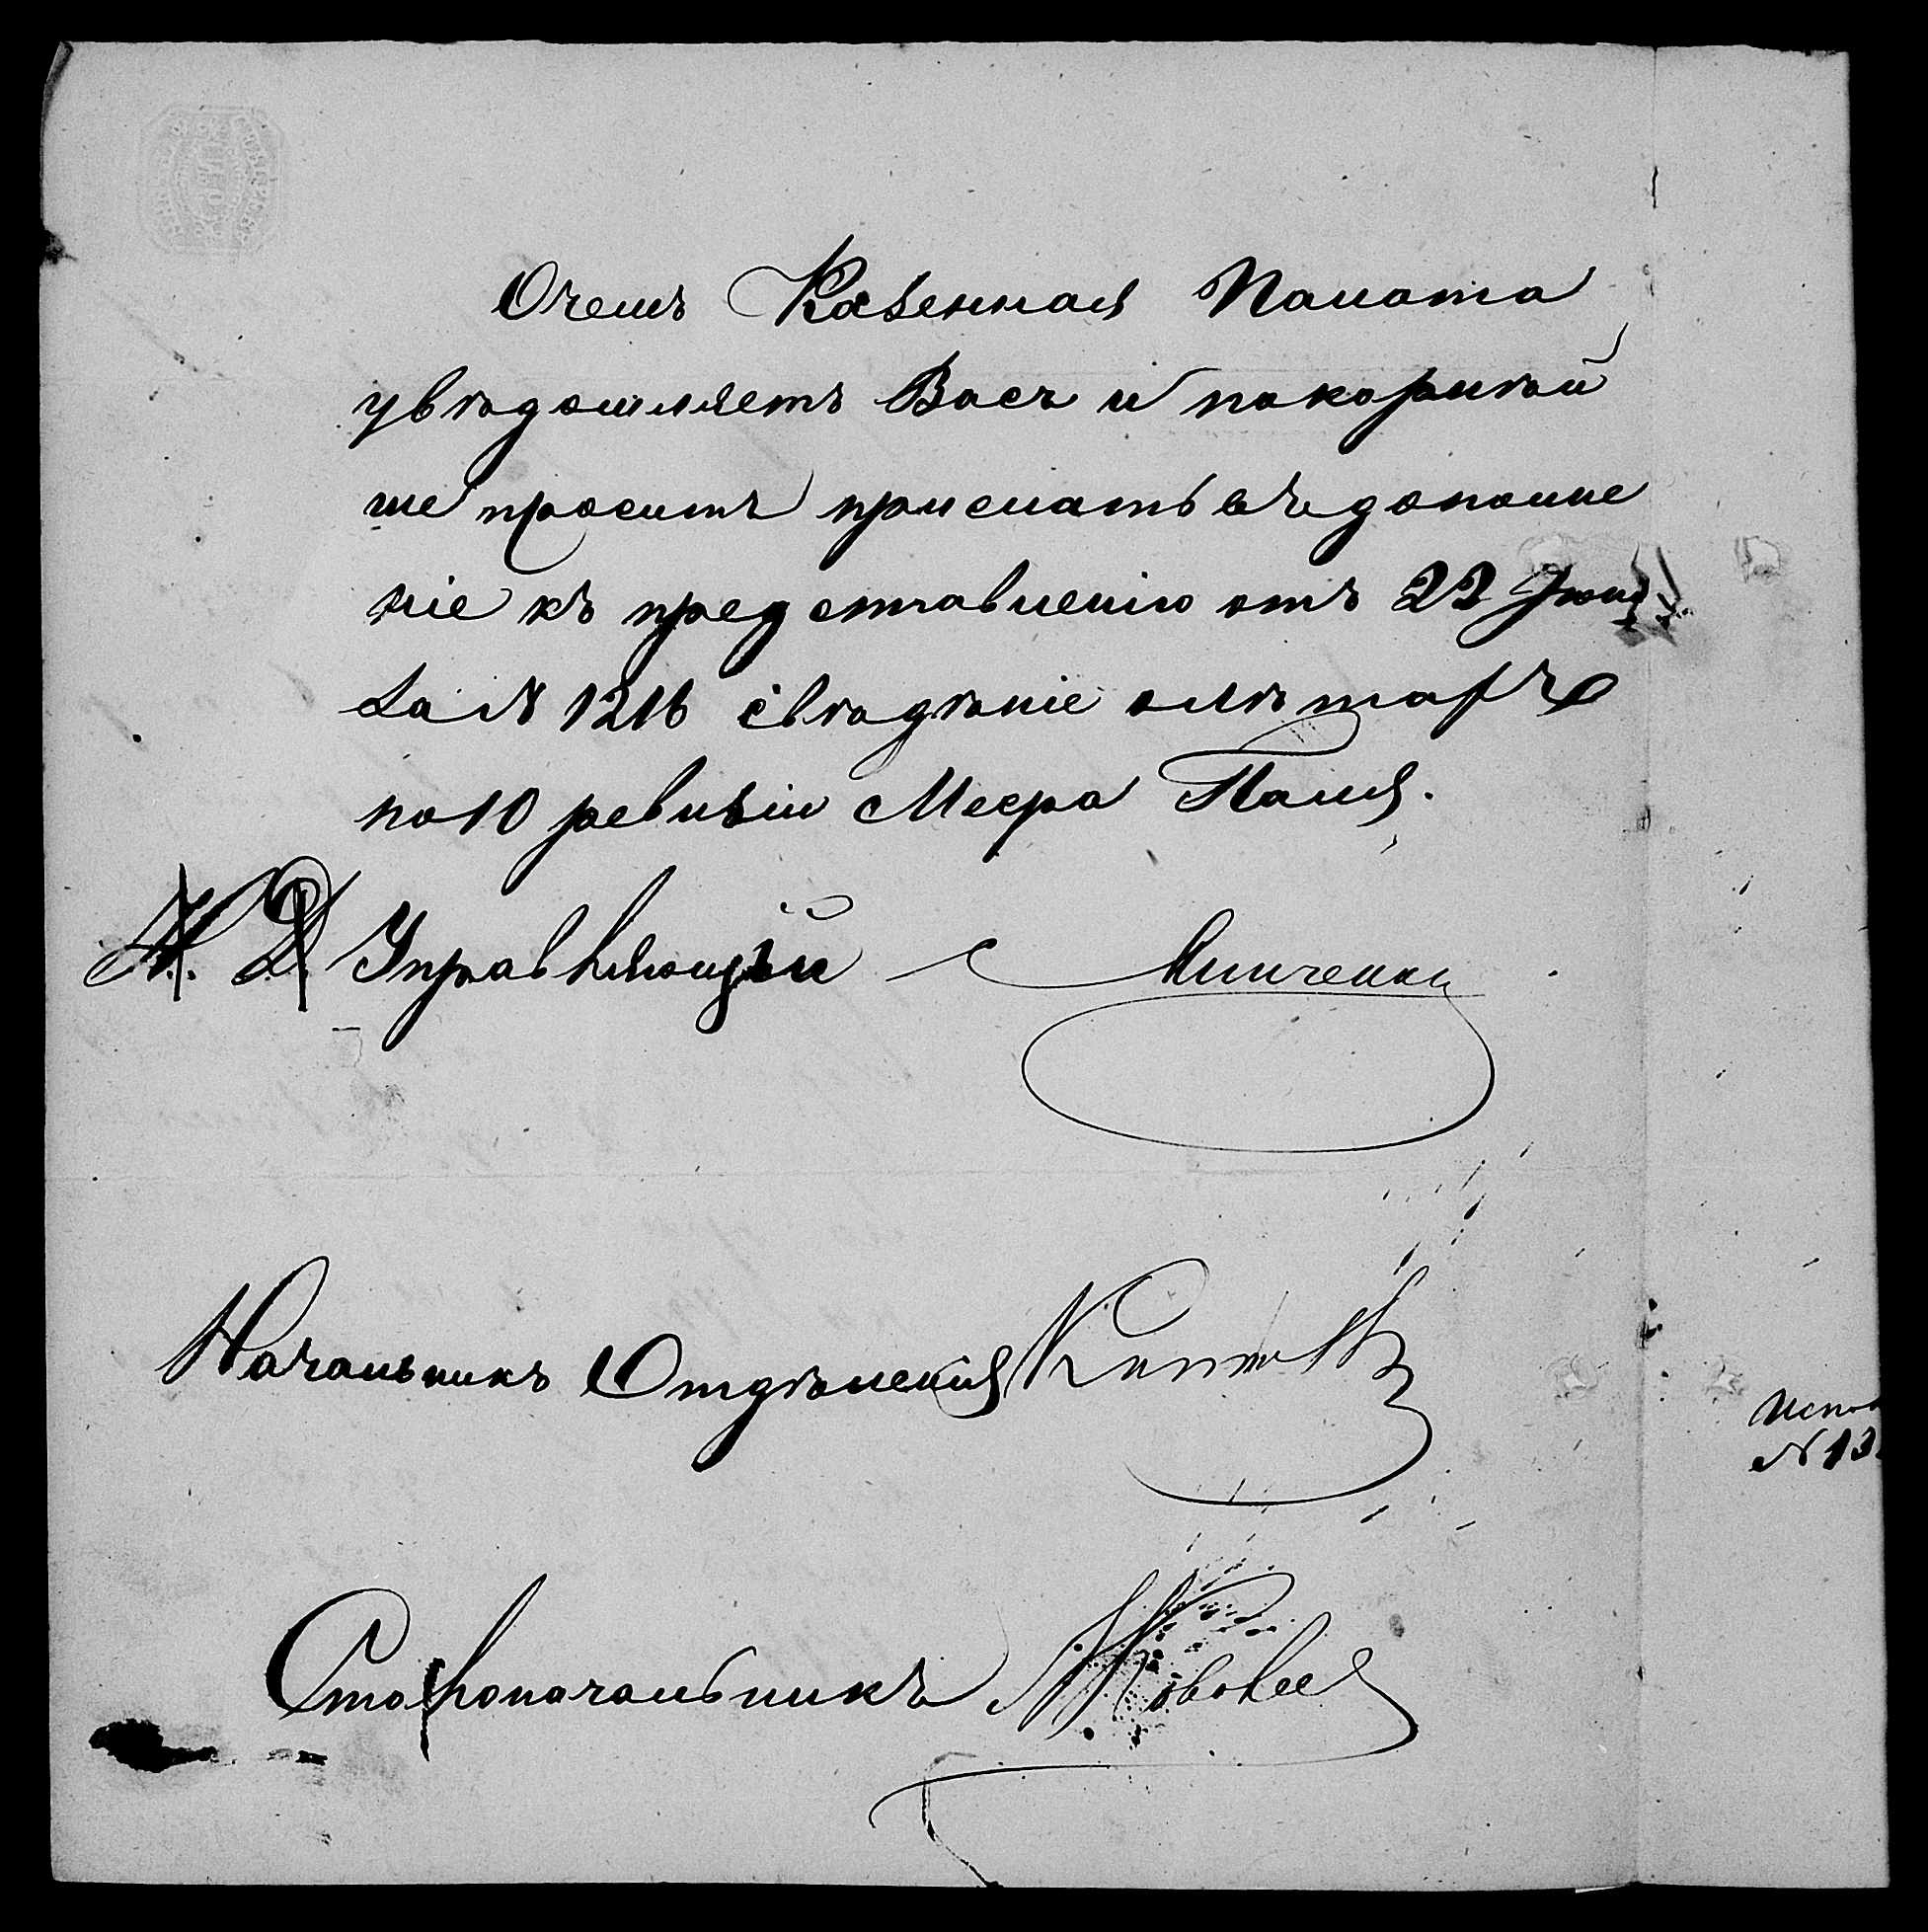 О чемъ Казенная Палата
увѣдомляетъ Васъ и покорнѣй
ше проситъ прислать въ дополне
ніе къ представленію отъ 22 Іюня
за № 1216 свѣдѣніе о лѣтахъ
по 10 ревизіи Меера Паля.
И. Д. Управляющій Линченко
Начальникъ Отдѣленія
Столоначальникъ
Испол
№ 13